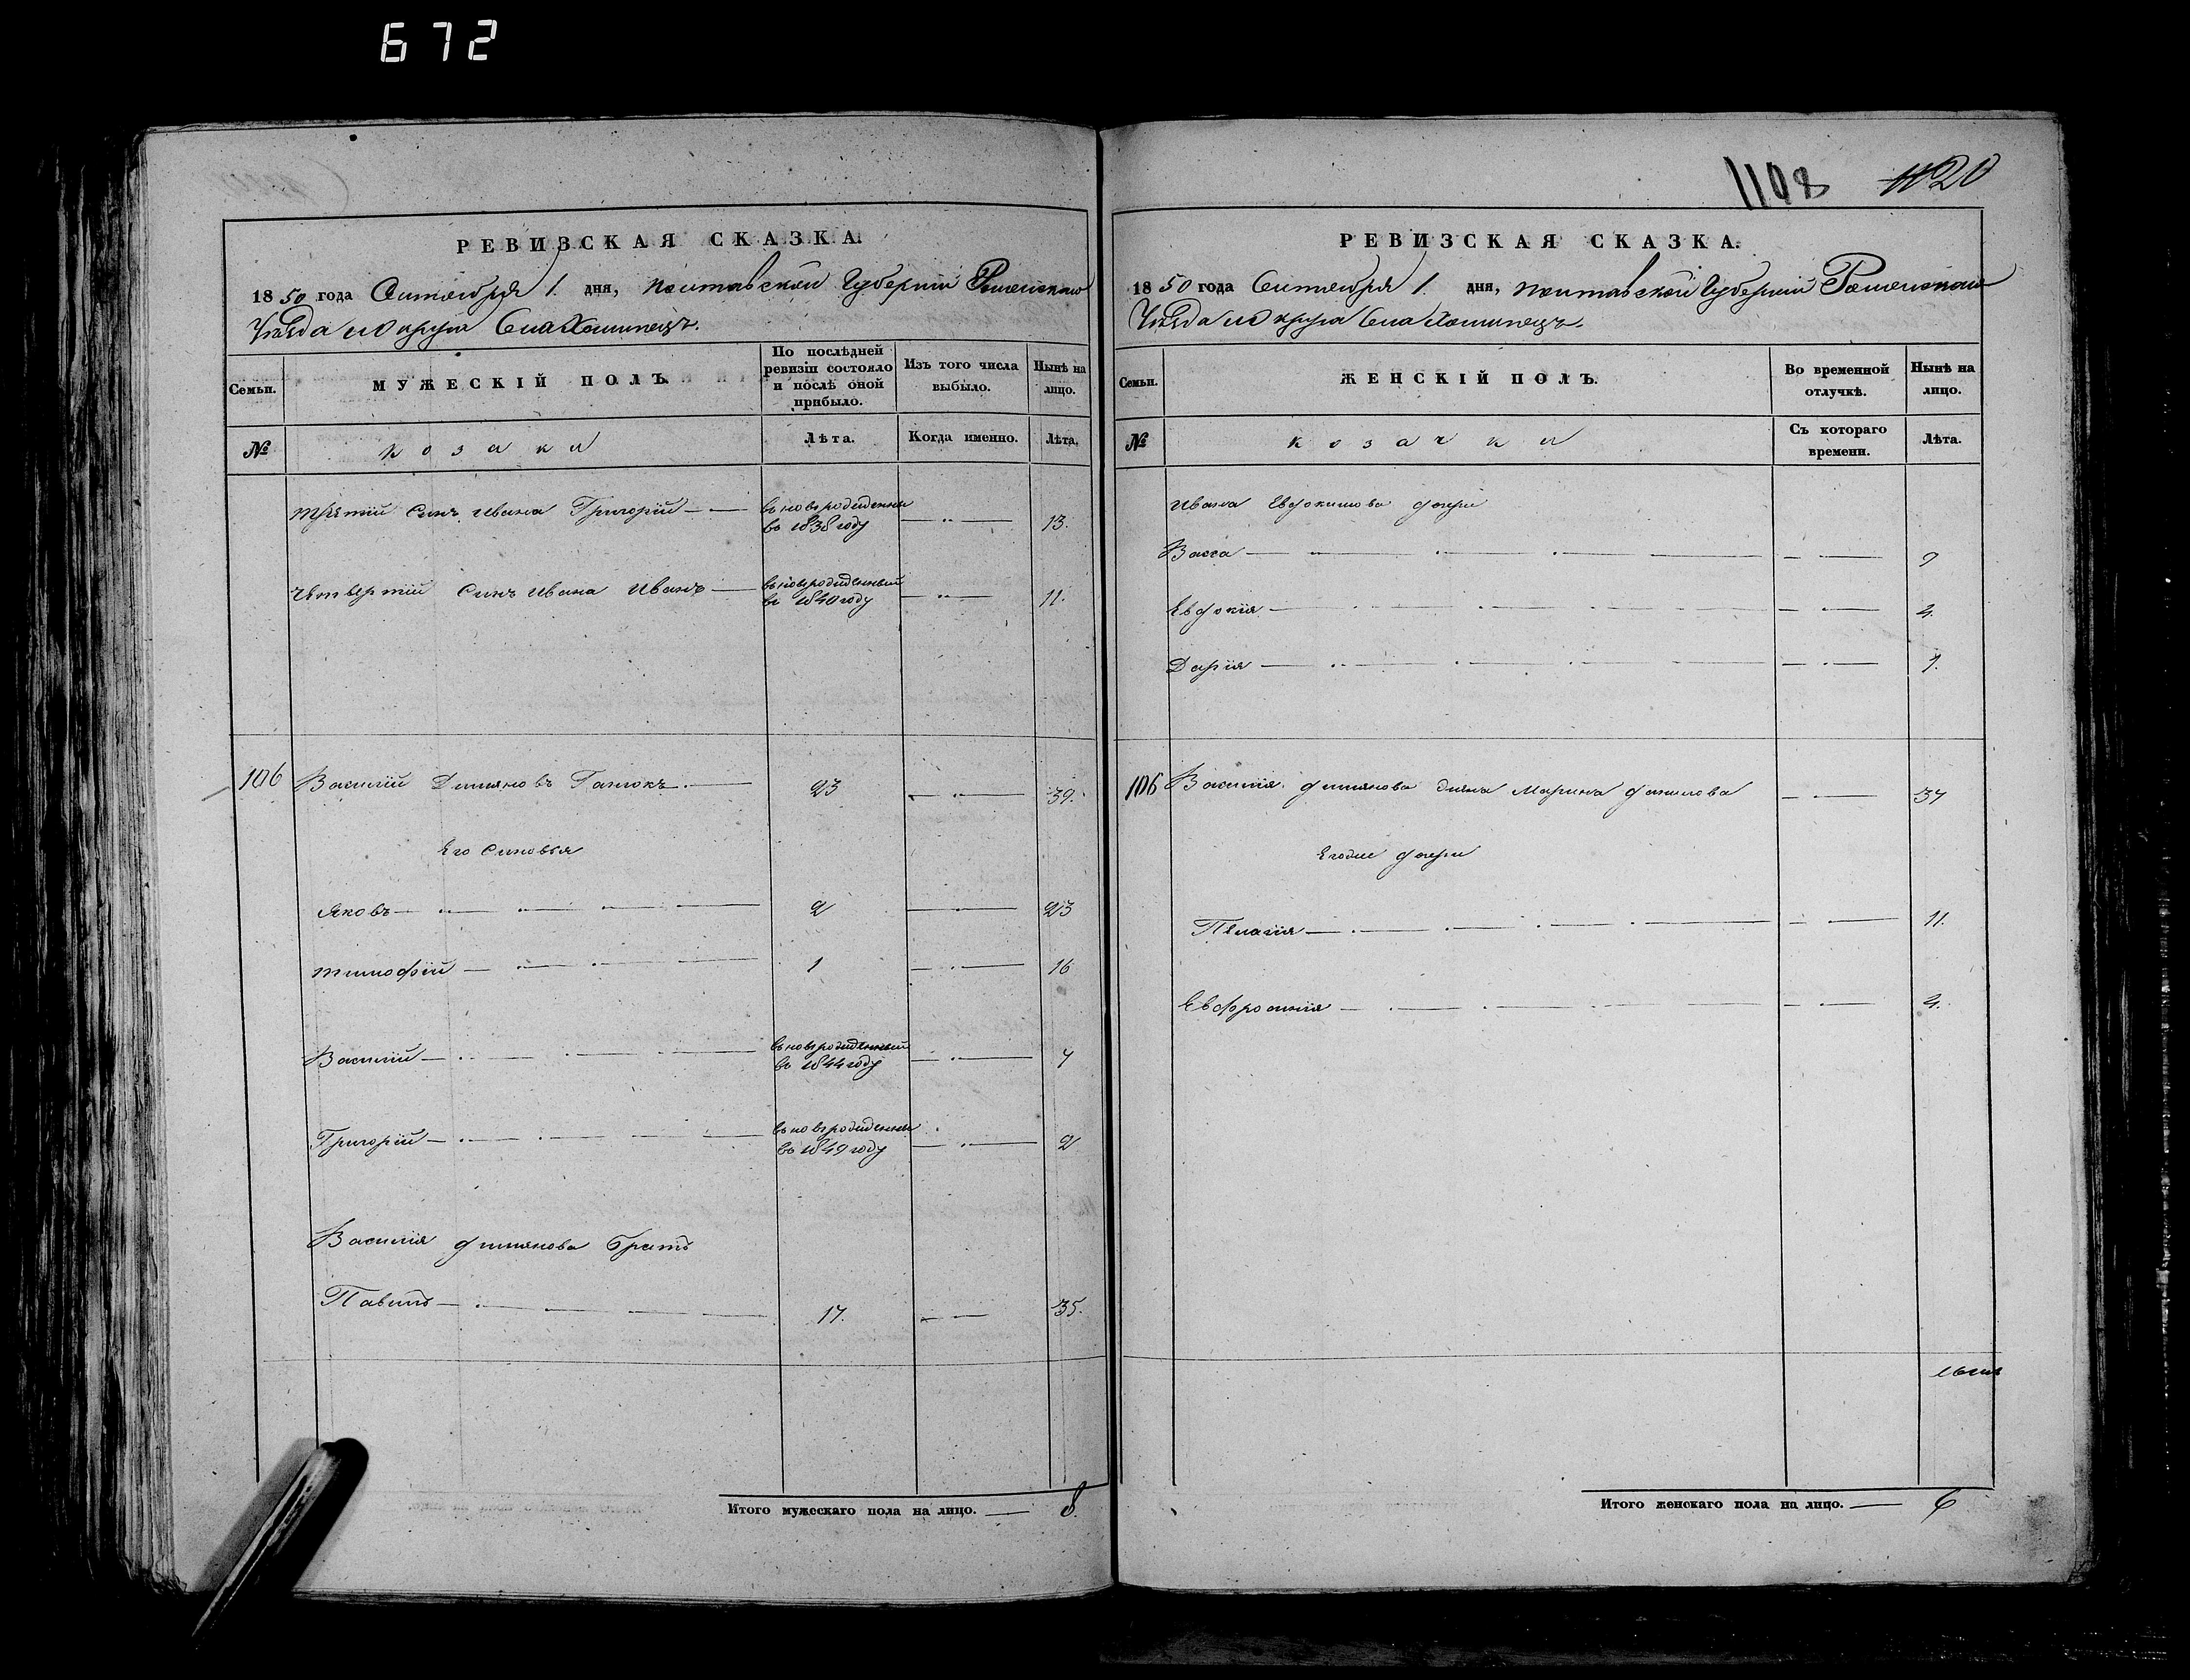 672
РЕВИЗСКАЯ СКАЗКА.
1850 года Сентября 1. дня, Полтавской Губернии Роменского
Уезда и округа Села Хоминецъ.
Семьи.
МУЖЕСКІЙ ПОЛЪ.
По послѣдней ревизіи состояло и послѣ оной прибыло.
Изъ того числа выбыло.
Нынѣ на лицо.
№
козаки
Лѣта.
Когда именно.
Лѣта.
третий Синъ Ивана Григорій вновьрожденни въ 1838 году 13.
Четвертий Синъ Ивана Иванъ вновьрожденный въ 1840 году 11.
106 Василій Димяновъ 23 39.
Его Синовья
Яковъ 2 23
Тимофей 1 16
Василій вновьрожденный въ 1844 году 7
Григорій вновьрожденни въ 1849 году 2
Василія Димянова братъ
Павелъ 17. 35.
Итого мужескаго пола на лицо. 8.
1108 1120
РЕВИЗСКАЯ СКАЗКА.
1850 года Сентября 1. дня, Полтавской Губерніи Роменского
Уезда и округа Села Хоминецъ.
Семьи.
ЖЕНСКІЙ ПОЛЪ.
Во временной отлучкѣ.
Нынѣ на лицо.
№
козачки
Съ котораго времени.
Лѣта.
Ивана Евдокимова дочери
Васса 9
Евдокія 4.
Дарія 1.
106 Василия Димянова жена Марина Данилова 37
Егоже дочери
Пелагія 11.
Евфросинія 4.
Итого женскаго пола на лицо. 6